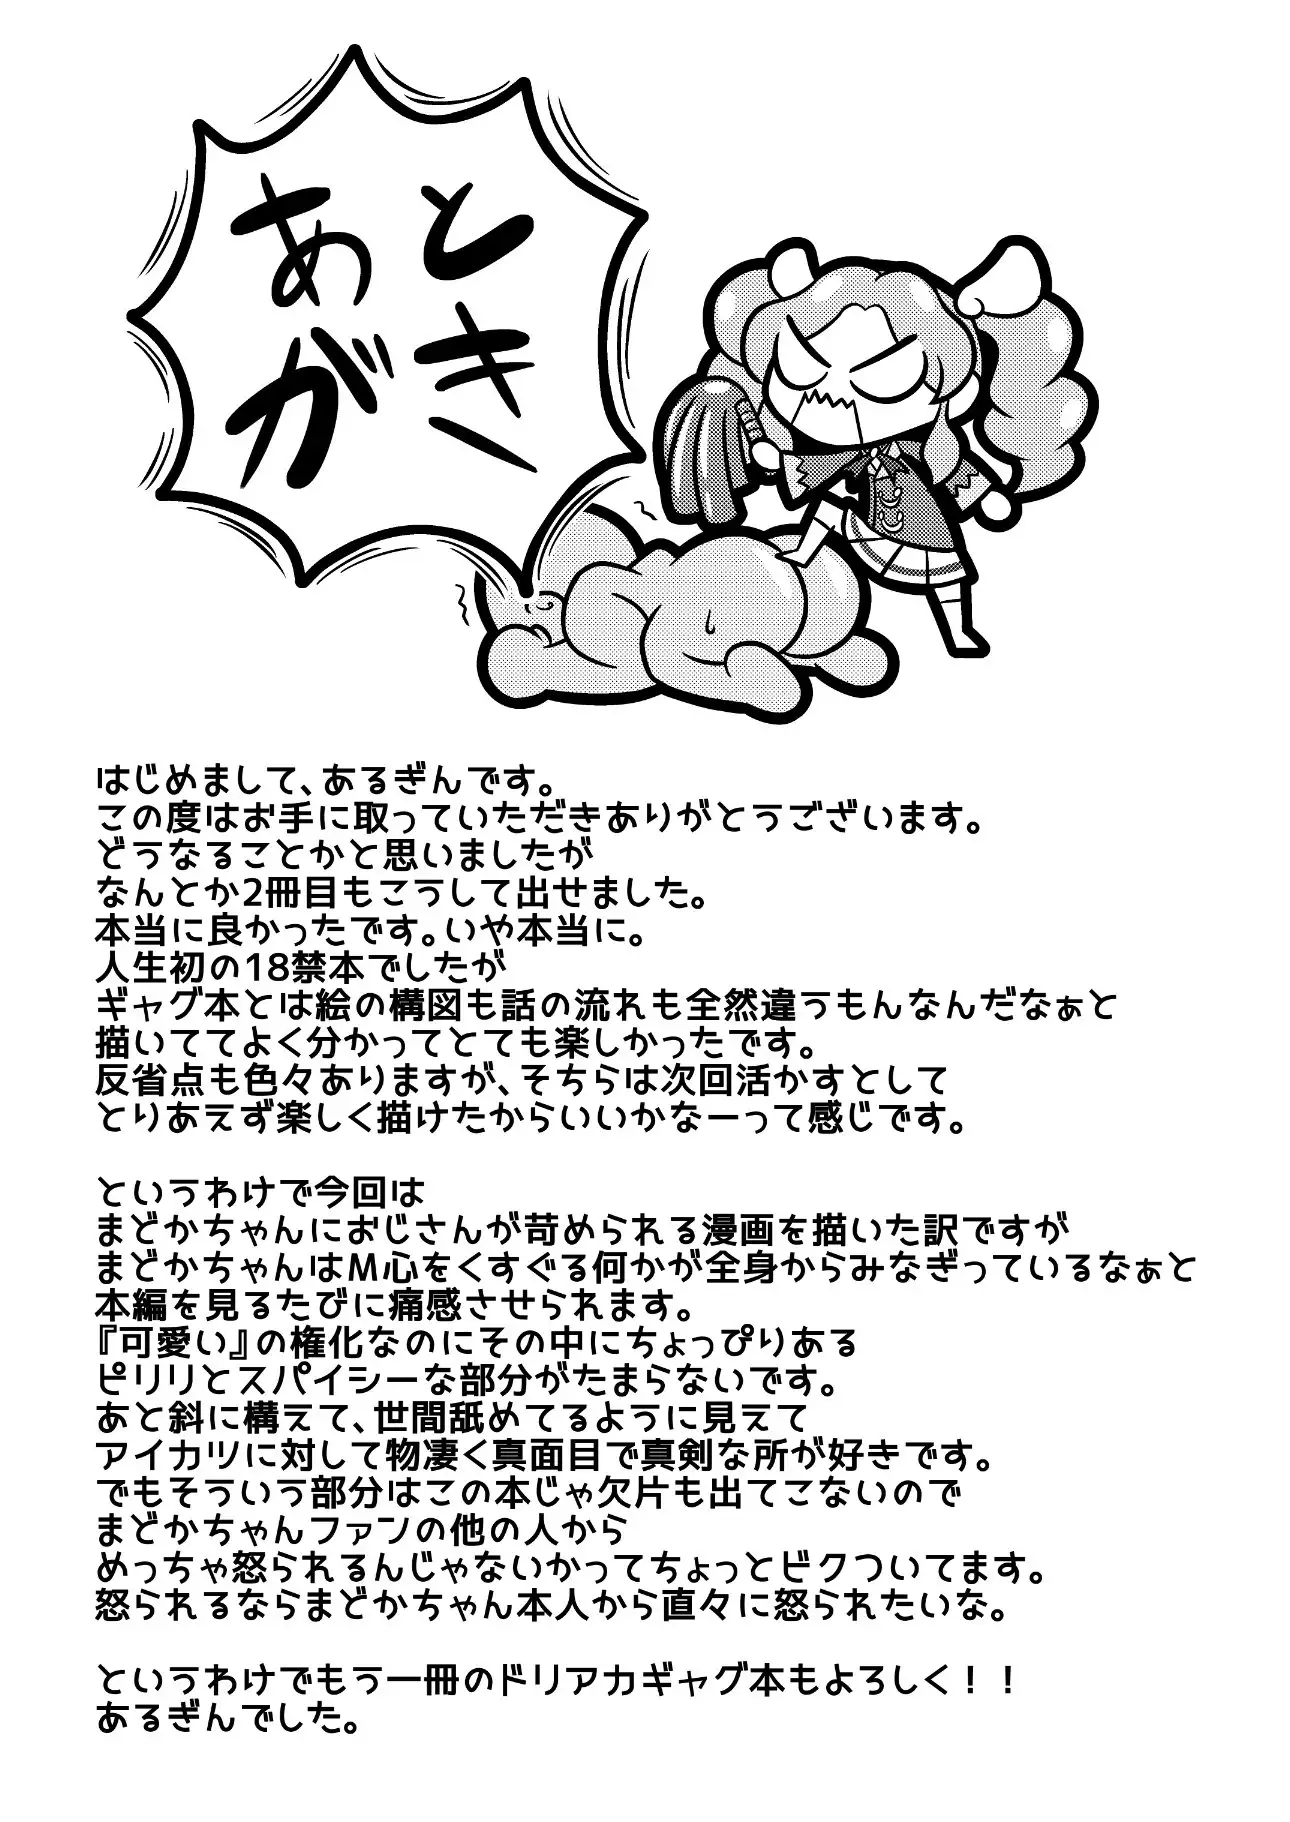 あとがき
はじめまして、あるぎんです。
この度はお手に取っていただきありがとうございます。
どうなることかと思いましたが
なんとか2冊目もこうして出せました。
本当に良かったです。いや本当に。
人生初の18禁本でしたが
ギャグ本とは絵の構図も話の流れも全然違うもんなんだなぁと
描いててよく分かってとても楽しかったです。
反省点も色々ありますが、そちらは次回活かすとして
とりあえず楽しく描けたからいいかなーって感じです。
というわけで今回は
まどかちゃんにおじさんが苛められる漫画を描いた訳ですが
まどかちゃんはM心をくすぐる何かが全身からみなぎっているなぁと
本編を見るたびに痛感させられます。
『可愛い』の権化なのにその中にちょっぴりある
ピリリとスパイシーな部分がたまらないです。
あと斜に構えて、世間舐めてるように見えて
アイカツに対して物凄く真面目で真剣な所が好きです。
でもそういう部分はこの本じゃ欠片も出てこないので
まどかちゃんファンの他の人から
めっちゃ怒られるんじゃないかってちょっとビクついてます。
怒られるならまどかちゃん本人から直々に怒られたいな。
というわけでもう一冊のドリアカギャグ本もよろしく！！
あるぎんでした。